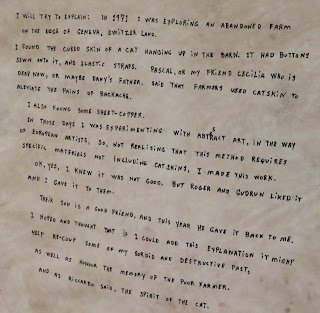 I WILL TRY TO EXPLAIN: IN 1971 I WAS EXPLORING AN ABANDONED FARM
ON THE EDGE OF GENEVA, SWITZERLAND.
I FOUND THE CURED SKIN OF A CAT HANGING UP IN THE BARN. IT HAD BUTTONS
SEWN ONTO IT, AND ELASTIC STRAPS. PASCAL, OR MY FRIEND CECILIA WHO IS
DEAD NOW, OR MAYBE DANY'S FATHER, SAID THAT FARMERS USED CATSKIN TO
ALEVIATE THE PAINS OF BACKACHE.
I ALSO FOUND SOME SHEET-COPPER.
IN THOSE DAYS I WAS EXPERIMENTING WITH ABSTRACT ART, IN THE WAY
OF EUROPEAN ARTISTS, SO, NOT REALISING THAT THIS METHOD REQUIRES
SPECIFIC MATERIALS NOT INCLUDING CATSKINS, I MADE THIS WORK.
OK, YES, I KNEW IT WAS NOT GOOD. BUT ROGER AND GUDRUN LIKED IT
AND I GAVE IT TO THEM.
THEIR SON IS A GOOD FRIEND, AND THIS YEAR HE GAVE IT BACK TO ME.
I HOPED AND THOUGHT THAT IF I COULD ADD THIS EXPLANATION IT MIGHT
HELP RE-COUP SOME OF MY SORDID AND DESTRUCTIVE PAST,
AS WELL AS HONOUR THE MEMORY OF THE POOR FARMER.
AND AS RICCARDO SAID, THE SPIRIT OF THE CAT.